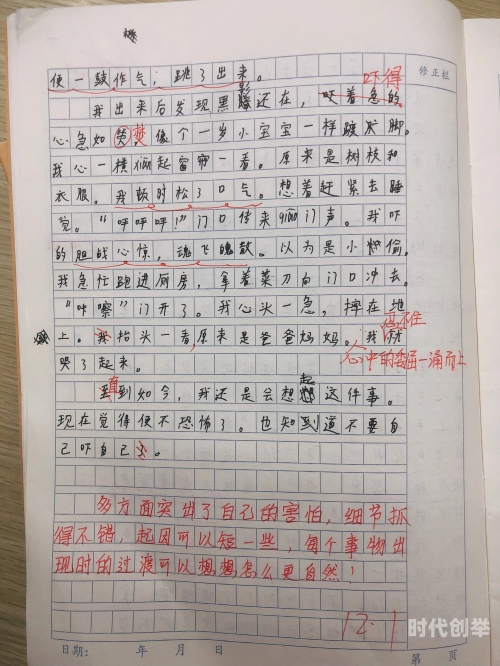 修正栏
便一鼓作气，跳了出来。
吓得
我出来后发现黑影还在，吓着急的
心急如焚，像个一岁小宝宝一样跺脚。
我心一横掀起窗帘一看。原来是树枝和
衣服。我顿时松了口气。想着赶紧去睡
觉。“呼呼呼！”门口传来门声。我吓
的胆战心惊，魂飞魄散。以为是小偷。
我急忙跑进厨房，拿着菜刀向门口冲去。
“咔嚓”门开了。我心头一急，摔在地
上。我抬头一看，原来是爸爸妈妈。我
忍不住
哭了起来。
心中的委屈一涌而上
直到如今，我还是会想起这件事。
现在觉得便不恐怖了。也知道不要自
己吓自己。
多方面突出了自己的害怕，细节抓
得不错，起因可以短一些，每个事物出
现时的过渡可以想想怎么更自然！
12.1
时代创举
日期： 年 月 日 第 页